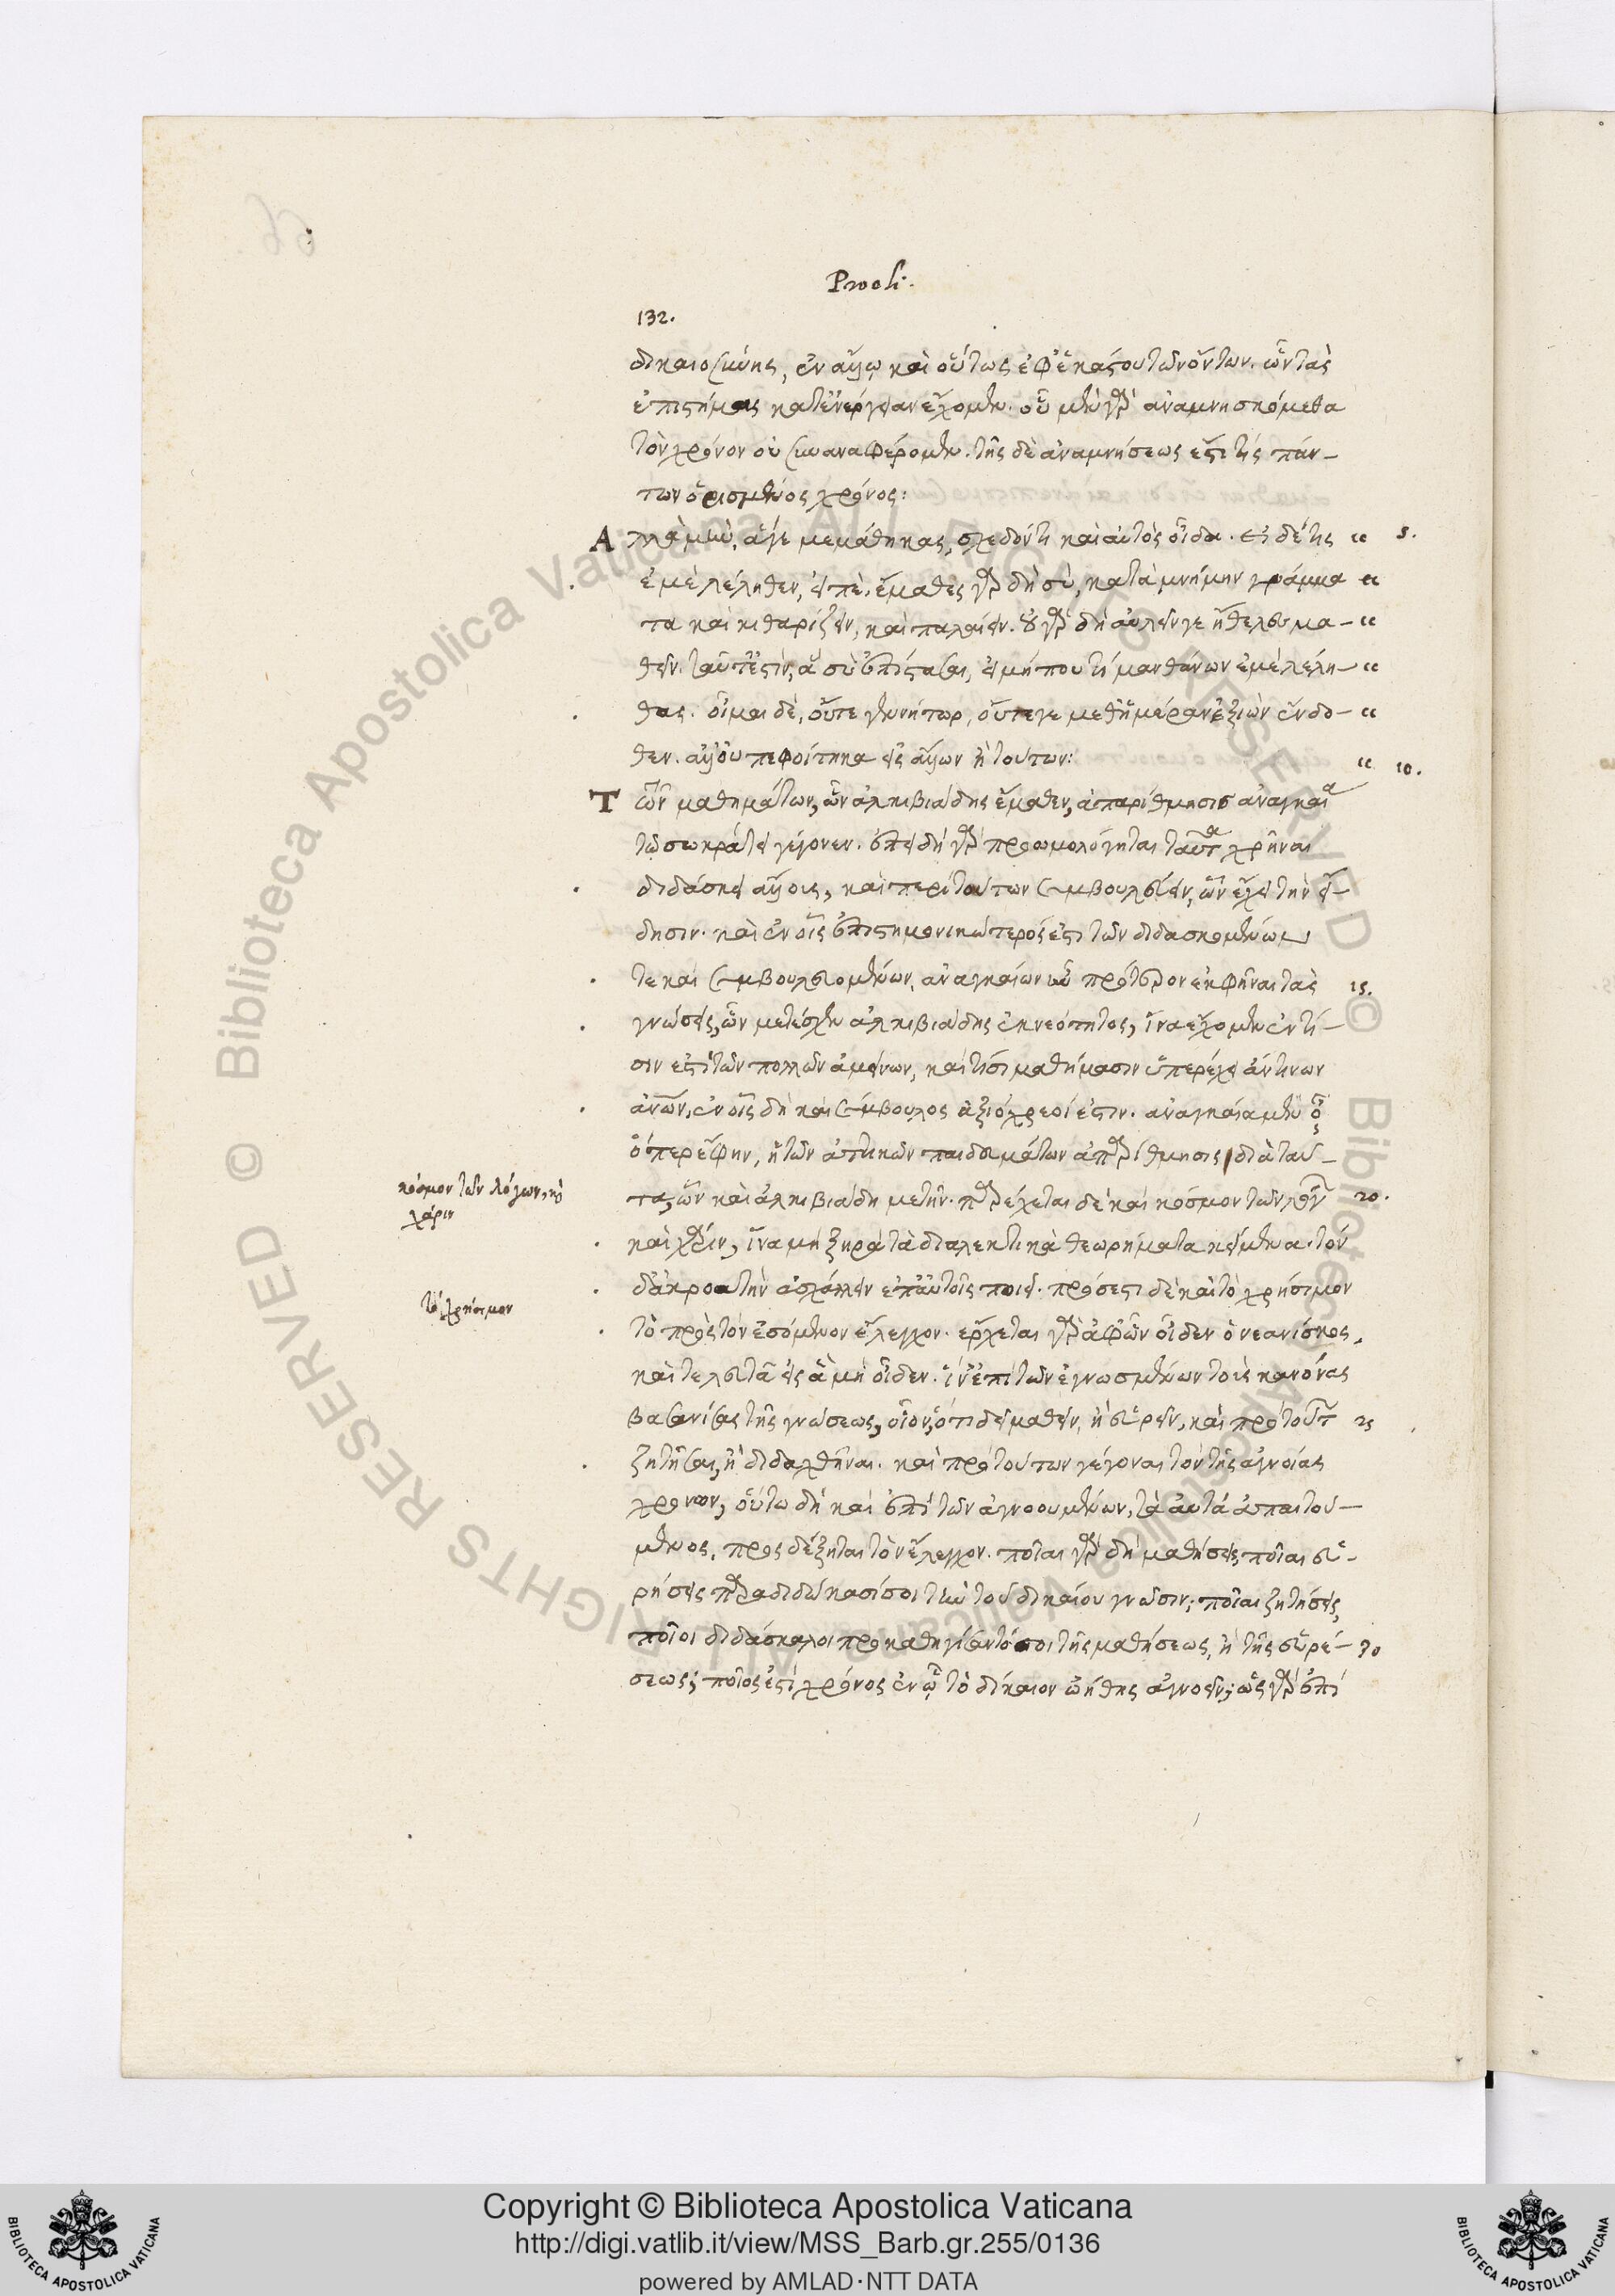 Procli.
132.
δικαιοσύνης, ἐν ἄλλῳ καὶ οὕτως ἐφ' ἑκάστου τῶν ὄντων. ὧν τὰς
ἐπιστήμας κατ' ἐνέργειαν ἔχομεν. οὐ μὴν γὰρ ἀναμνησκόμεθα
τὸν χρόνον οὐ συναναφέρομεν. τῆς δὲ ἀναμνήσεως ἐστί τις πάν-
των ὁρισμένος χρόνος:
Ἀλλὰ μὴν, ἅγε μεμάθηκας, σχεδόν τι καὶ αὐτὸς οἶδα. εἰ δέ τις “ 5.
ἐμὲ λέληθεν, εἰπὲ. ἔμαθες γὰρ δὴ σὺ, κατὰ μνήμην γράμμα “
τα καὶ κιθαρίζειν, καὶ παλαίειν. οὐ γὰρ δὴ αὐλεῖν γε ἤθελες μα- “
θεῖν. ταῦτ' ἐστὶν, ἃ σὺ ἐπίστασαι, εἰ μή που τί μανθάνων ἐμὲ λέλη- “
θας. οἶμαι δὲ, οὔτε γε νύκτωρ, οὔτε γε μεθ' ἡμέραν ἐξιὼν ἔνδο- “
θεν. ἀλλ' οὐ πεφοίτηκα εἰς ἄλλων ἢ τούτων: “ 10.
Τῶν μαθημάτων, ὧν ἀλκιβιάδης ἔμαθεν, ἀπαρίθμησις ἀναγκαία
τῷ σωκράτει γέγονεν. ἐπειδὴ γὰρ προωμολόγηται ταῦτα χρῆναι
διδάσκειν ἄλλους, καὶ περὶ τούτων συμβουλεύειν, ὧν ἔχει τὴν εἴ-
δησιν. καὶ ἐν οἷς ἐπιστημονικώτερός ἐστι τῶν διδασκομένων
τε καὶ συμβουλευομένων, ἀναγκαίων οὖν πρότερον ἐκφῆναι τὰς 15.
γνώσεις, ὧν μετέσχεν ἀλκιβιάδης ἐκ νεότητος, ἵνα ἔχομεν ἐν τί-
σιν ἐστὶ τῶν πολλῶν ἀμείνων, καὶ τίσι μαθήμασιν ὑπερέχει ἄντινων
ἀνων, ἐν οἷς δὴ καὶ σύμβουλος ἀξιόχρεοί ἐστιν. ἀναγκαία μὲν οὖν
ὅπερ ἔφην, ἡ τῶν ἀττικῶν παιδευμάτων ἀπαρίθμησις διὰ ταῦ-
τα, ὧν καὶ ἀλκιβιάδῃ μετῆν. παρέχεται δὲ καὶ κόσμον τῶν λόγων 20.
κόσμον τῶν λόγων, καὶ
χάριν
καὶ χάριν, ἵνα μὴ ξηρὰ τὰ διαλεκτικὰ θεωρήματα κείμενα. τὸν
δ' ἀκροατὴν ἀσχάλλειν ἐπ' αὐτοῖς ποιεῖ. πρόσεστι δὲ καὶ τὸ χρήσιμον
τὸ χρήσιμον
τὸ πρὸς τὸν ἐσόμενον ἔλεγχον. ἔρχεται γὰρ ἀφ' ὧν οἶδεν ὁ νεανίσκος,
καὶ τελευτᾶ εἰς ἃ μὴ οἶδεν. ἵν' ἐπὶ τῶν ἐγνωσμένων τοὺς κανόνας
βασανίσας τῆς γνώσεως, οἷον, ὅτι δεῖ μαθεῖν, ἢ εὑρεῖν, καὶ πρὸ τούτων 25
ζητῆσαι, ἢ διδαχθῆναι. καὶ πρὸ τούτων γέγοναι τὸν τῆς ἀγνοίας
χρόνον, οὕτω δὴ καὶ ἐπὶ τῶν ἀγνοουμένων, τὰ αὐτὰ ἀπαιτού-
μενος, προς δέξηται τὸν ἔλεγχον. ποῖαι γὰρ δὴ μαθήσεις ποῖαι εὑ-
ρήσεις παραδιδώκασί σοι τὴν τοῦ δικαίου γνῶσιν; ποῖαι ζητήσεις,
ποῖοι διδάσκαλοι προκαθηγήσαντό σοι τῆς μαθήσεως, ἢ τῆς εὑρέ- 30
σεως; ποῖος ἐστὶ χρόνος ἐν ᾧ τὸ δίκαιον ᾠήθης ἀγνοεῖν; ὡς γὰρ ἐπὶ
Copyright © Biblioteca Apostolica Vaticana
http://digi.vatlib.it/view/MSS_Barb.gr.255/0136
powered by AMLAD·NTT DATA